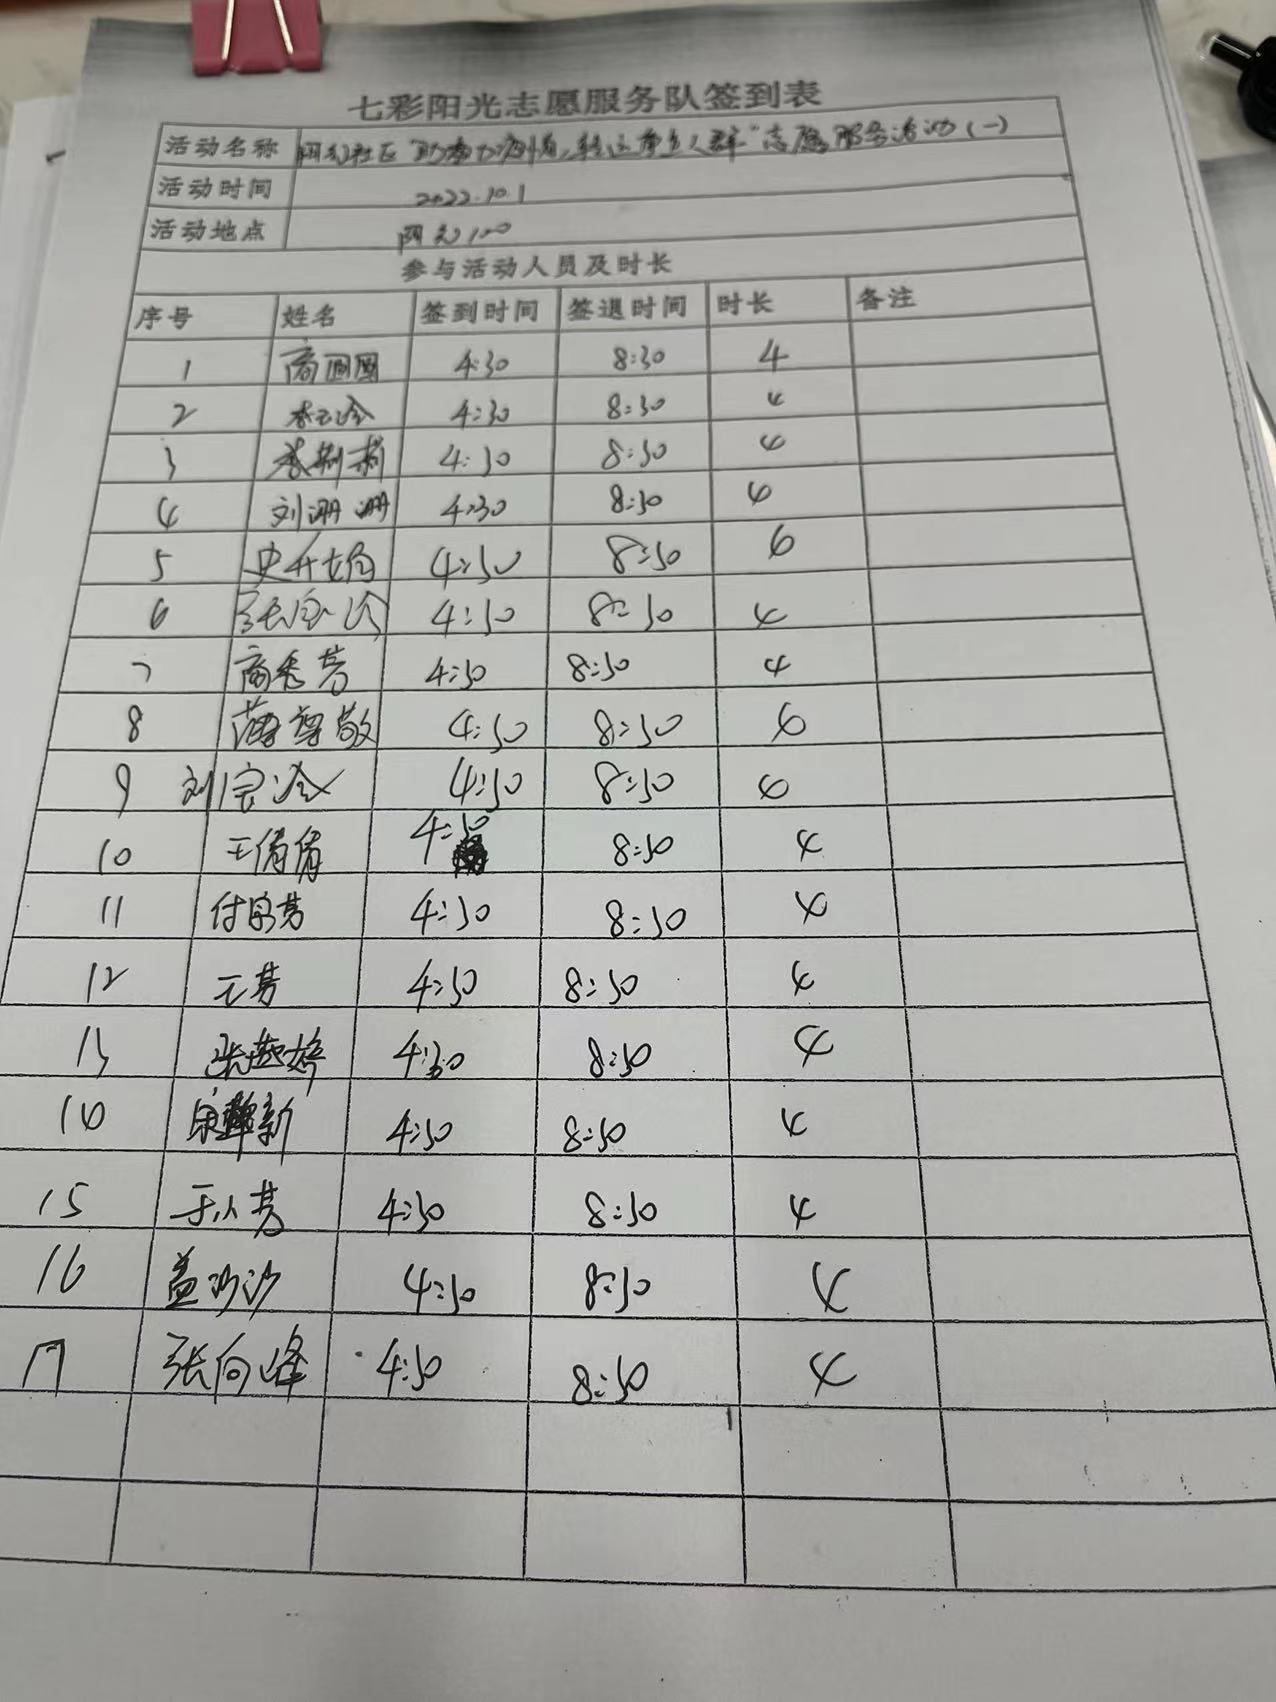 七彩阳光志愿服务队签到表
活动名称 阳光社区 志愿服务活动（一）
活动时间 2022.10.1
活动地点 阳光100
参与活动人员及时长
序号 姓名 签到时间 签退时间 时长 备注
1 商圆圆 4:30 8:30 4
2 4:30 8:30 4
3 4:30 8:30 4
4 刘珊珊 4:30 8:30 4
5 4:30 8:30 4
6 4:30 8:30 4
7 商秀芳 4:30 8:30 4
8 薄尊敬 4:30 8:30 4
9 刘宝冷 4:30 8:30 4
10 王倩倩 4:30 8:30 4
11 4:30 8:30 4
12 王芳 4:30 8:30 4
13 张燕婷 4:30 8:30 4
14 4:30 8:30 4
15 于小芳 4:30 8:30 4
16 盖沙沙 4:30 8:30 4
17 张向峰 4:30 8:30 4